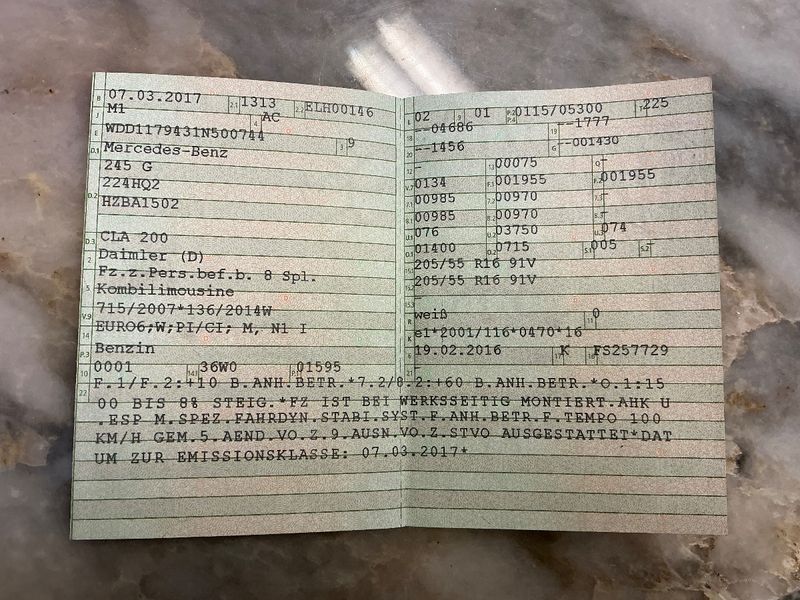 B 07.03.2017 2.1 1313 2.2 ELH00146
J M1 4 AC
E WDD1179431N500744 3 9
D.1 Mercedes-Benz
245 G
D.2 224HQ2
HZBA1502
D.3 CLA 200
2 Daimler (D)
5 Fz.z.Pers.bef.b. 8 Spl.
Kombilimousine
V.9 715/2007*136/2014W
14 EURO6;W;PI/CI; M, N1 I
P.3 Benzin
10 0001 14.1 36W0 P.1 01595
L 02 9 01 P.2 P.4 0115/05300 T 225
18 --04686 19 --1777
20 --1456 G --001430
12 - 13 00075 Q -
V.7 0134 F.1 001955 F.2 001955
7.1 00985 7.2 00970 7.3 -
8.1 00985 8.2 00970 8.3 -
U.1 076 U.2 03750 U.3 074
O.1 01400 O.2 0715 S.1 005 S.2 -
15.1 205/55 R16 91V
15.2 205/55 R16 91V
15.3 -
R weiß 11 0
K e1*2001/116*0470*16
6 19.02.2016 17 K 16 FS257729
21 -
22 F.1/F.2:+10 B.ANH.BETR.*7.2/8.2:+60 B.ANH.BETR.*O.1:15
00 BIS 8% STEIG.*FZ IST BEI WERKSSEITIG MONTIERT.AHK U
.ESP M.SPEZ.FAHRDYN.STABI.SYST.F.ANH.BETR.F.TEMPO 100
KM/H GEM.5.AEND.VO.Z.9.AUSN.VO.Z.STVO AUSGESTATTET*DAT
UM ZUR EMISSIONSKLASSE: 07.03.2017*